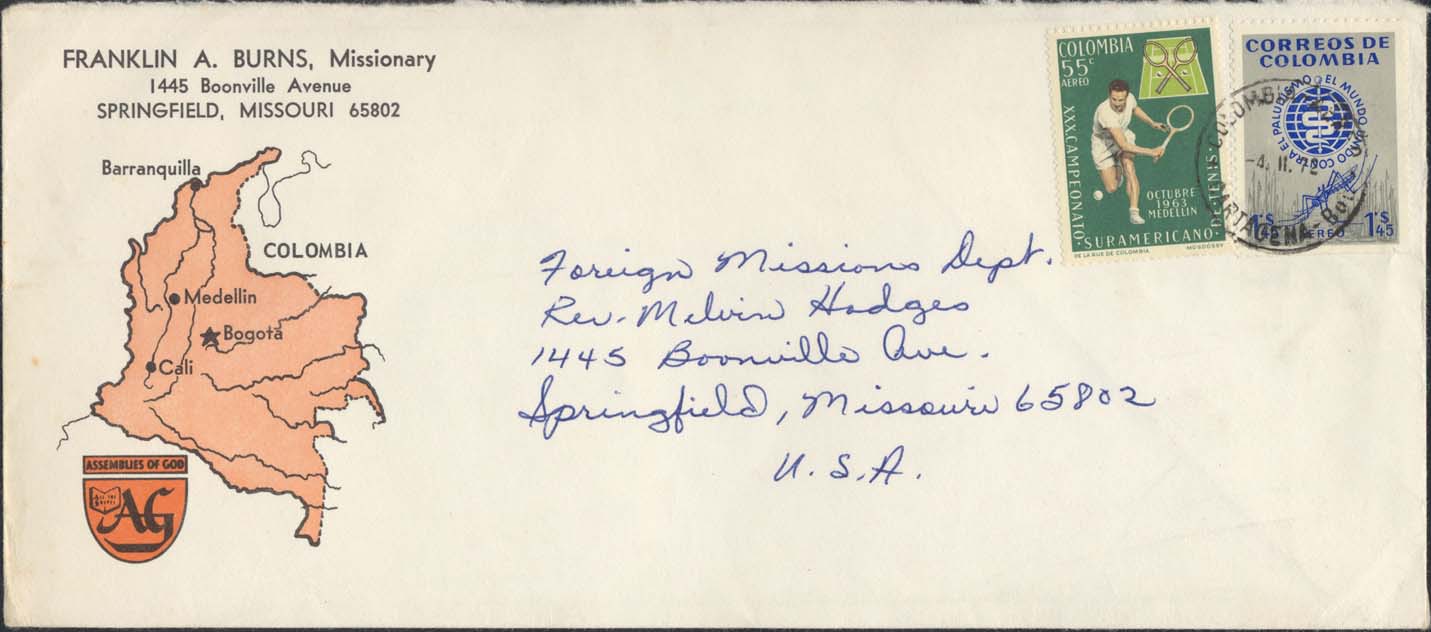 FRANKLIN A. BURNS, Missionary
1445 Boonville Avenue
SPRINGFIELD, MISSOURI 65802
Barranquilla
COLOMBIA
Medellin
Bogotá
Cali
ASSEMBLIES OF GOD
ALL THE GOSPEL
AG
COLOMBIA
55c
AEREO
XXX.CAMPEONATO·SURAMERICANO·DE TENIS·
OCTUBRE
1963
MEDELLIN
DE LA RUE DE COLOMBIA
CORREOS DE
COLOMBIA
EL MUNDO UNIDO CONTRA EL PALUDISMO
1'$45
AEREO
1'$45
COLOMBIA
-4. II. 72
CARTAGENA-BOL
Foreign Missions Dept.
Rev. Melvin Hodges
1445 Boonville Ave.
Springfield, Missouri 65802
U.S.A.